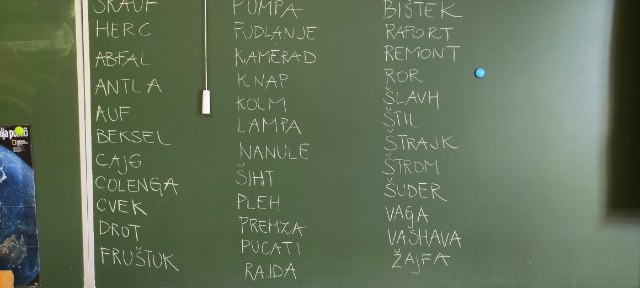 ŠRAUF
HERC
ABFAL
ANTLA
AUF
BEKSEL
CAJG
COLENGA
CVEK
DROT
FRUŠTUK
PUMPA
FUDLANJE
KAMERAD
KNAP
KOLM
LAMPA
NANULE
ŠIHT
PLEH
PREMZA
PUCATI
RAJDA
BIŠTEK
RAPORT
REMONT
ROR
ŠLAVH
ŠTIL
ŠTRAJK
ŠTROM
ŠUDER
VAGA
VAŠHAVA
ŽAJFA